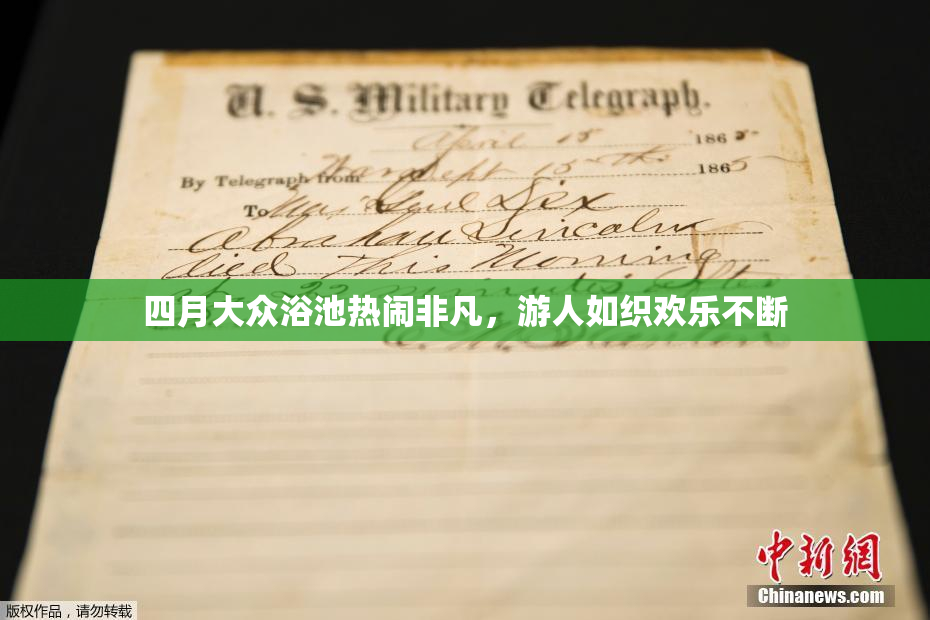 U. S. Military Telegraph.
April 15 1865
By Telegraph from War Dept 15th 1865
To Maj Genl Dix
Abraham Lincoln
died This Morning
at 22 minutes after
四月大众浴池热闹非凡，游人如织欢乐不断
E. M. Stanton
中新网
Chinanews.com
版权作品，请勿转载